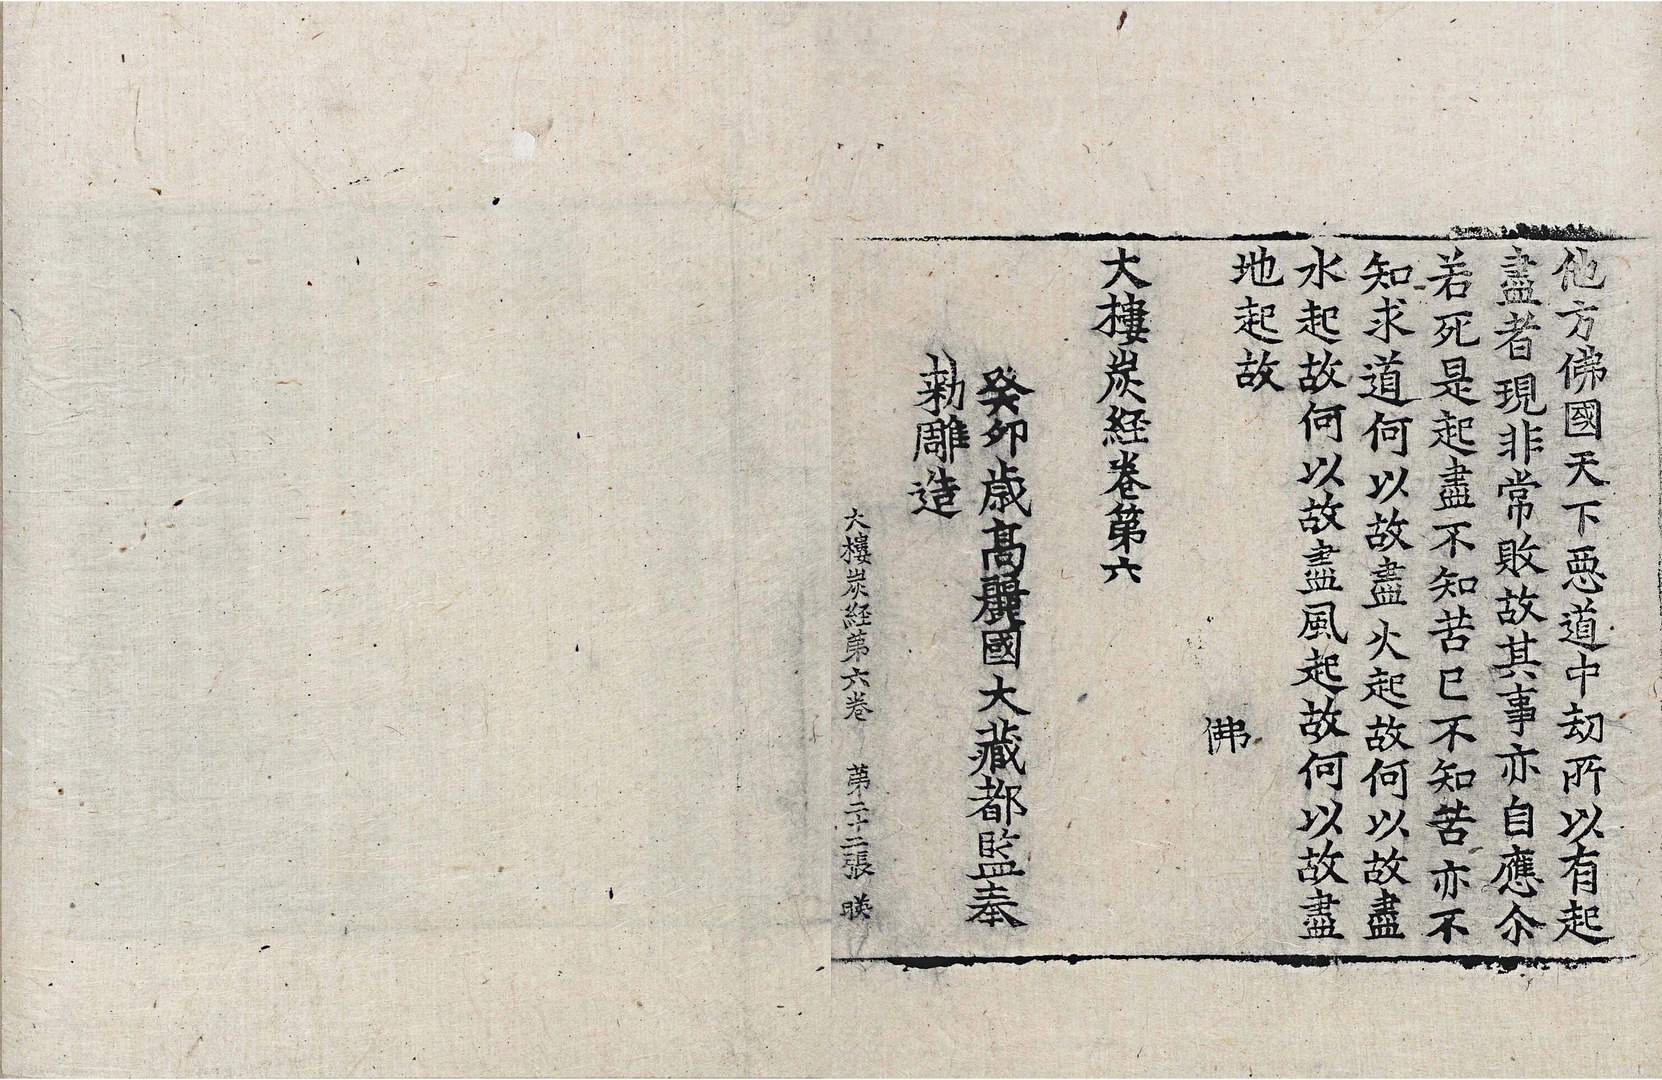 他方佛國天下惡道中劫所以有起
盡者現非常敗故其事亦自應尒
若死是起盡不知苦已不知苦亦不
知求道何以故盡火起故何以故盡
水起故何以故盡風起故何以故盡
地起故
佛
大樓炭経卷第六
癸卯歳髙麗國大藏都監奉
勅雕造
大樓炭経第六卷 第二十二張 暎